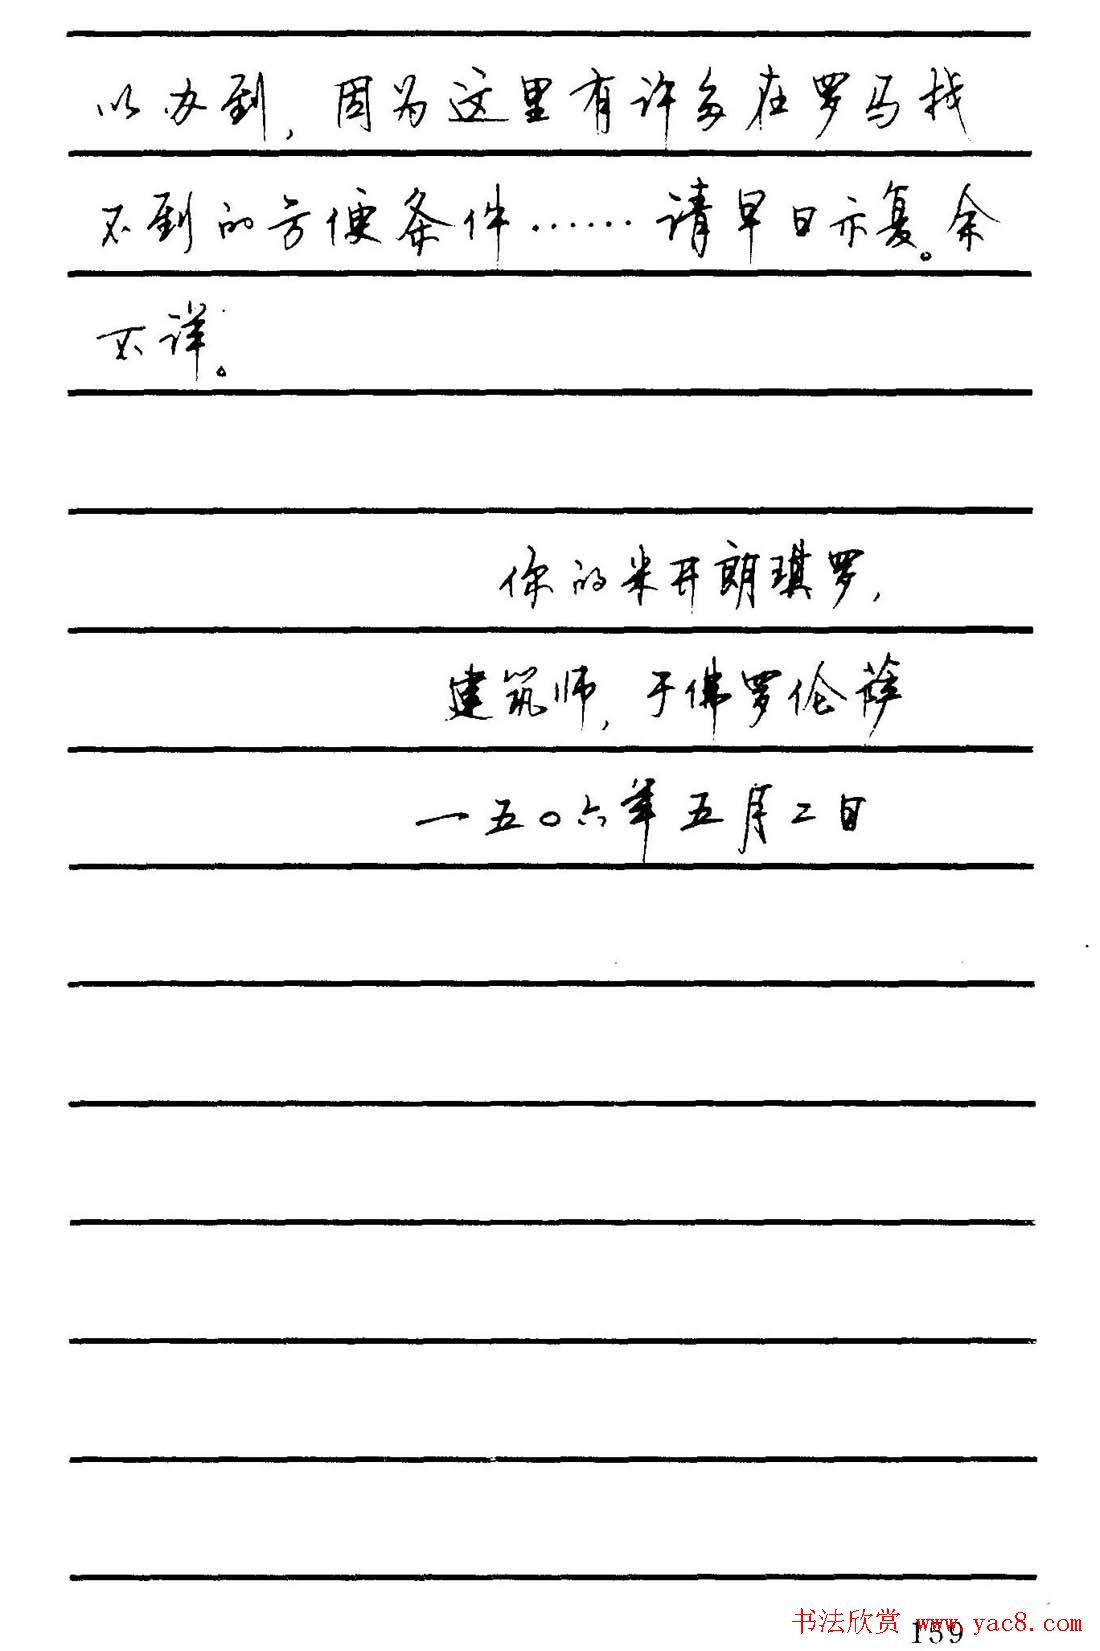 以办到，因为这里有许多在罗马找
不到的方便条件……请早日示复。余
不详。
你的米开朗琪罗，
建筑师，于佛罗伦萨
一五〇六年五月二日
书法欣赏 www.yac8.com
159